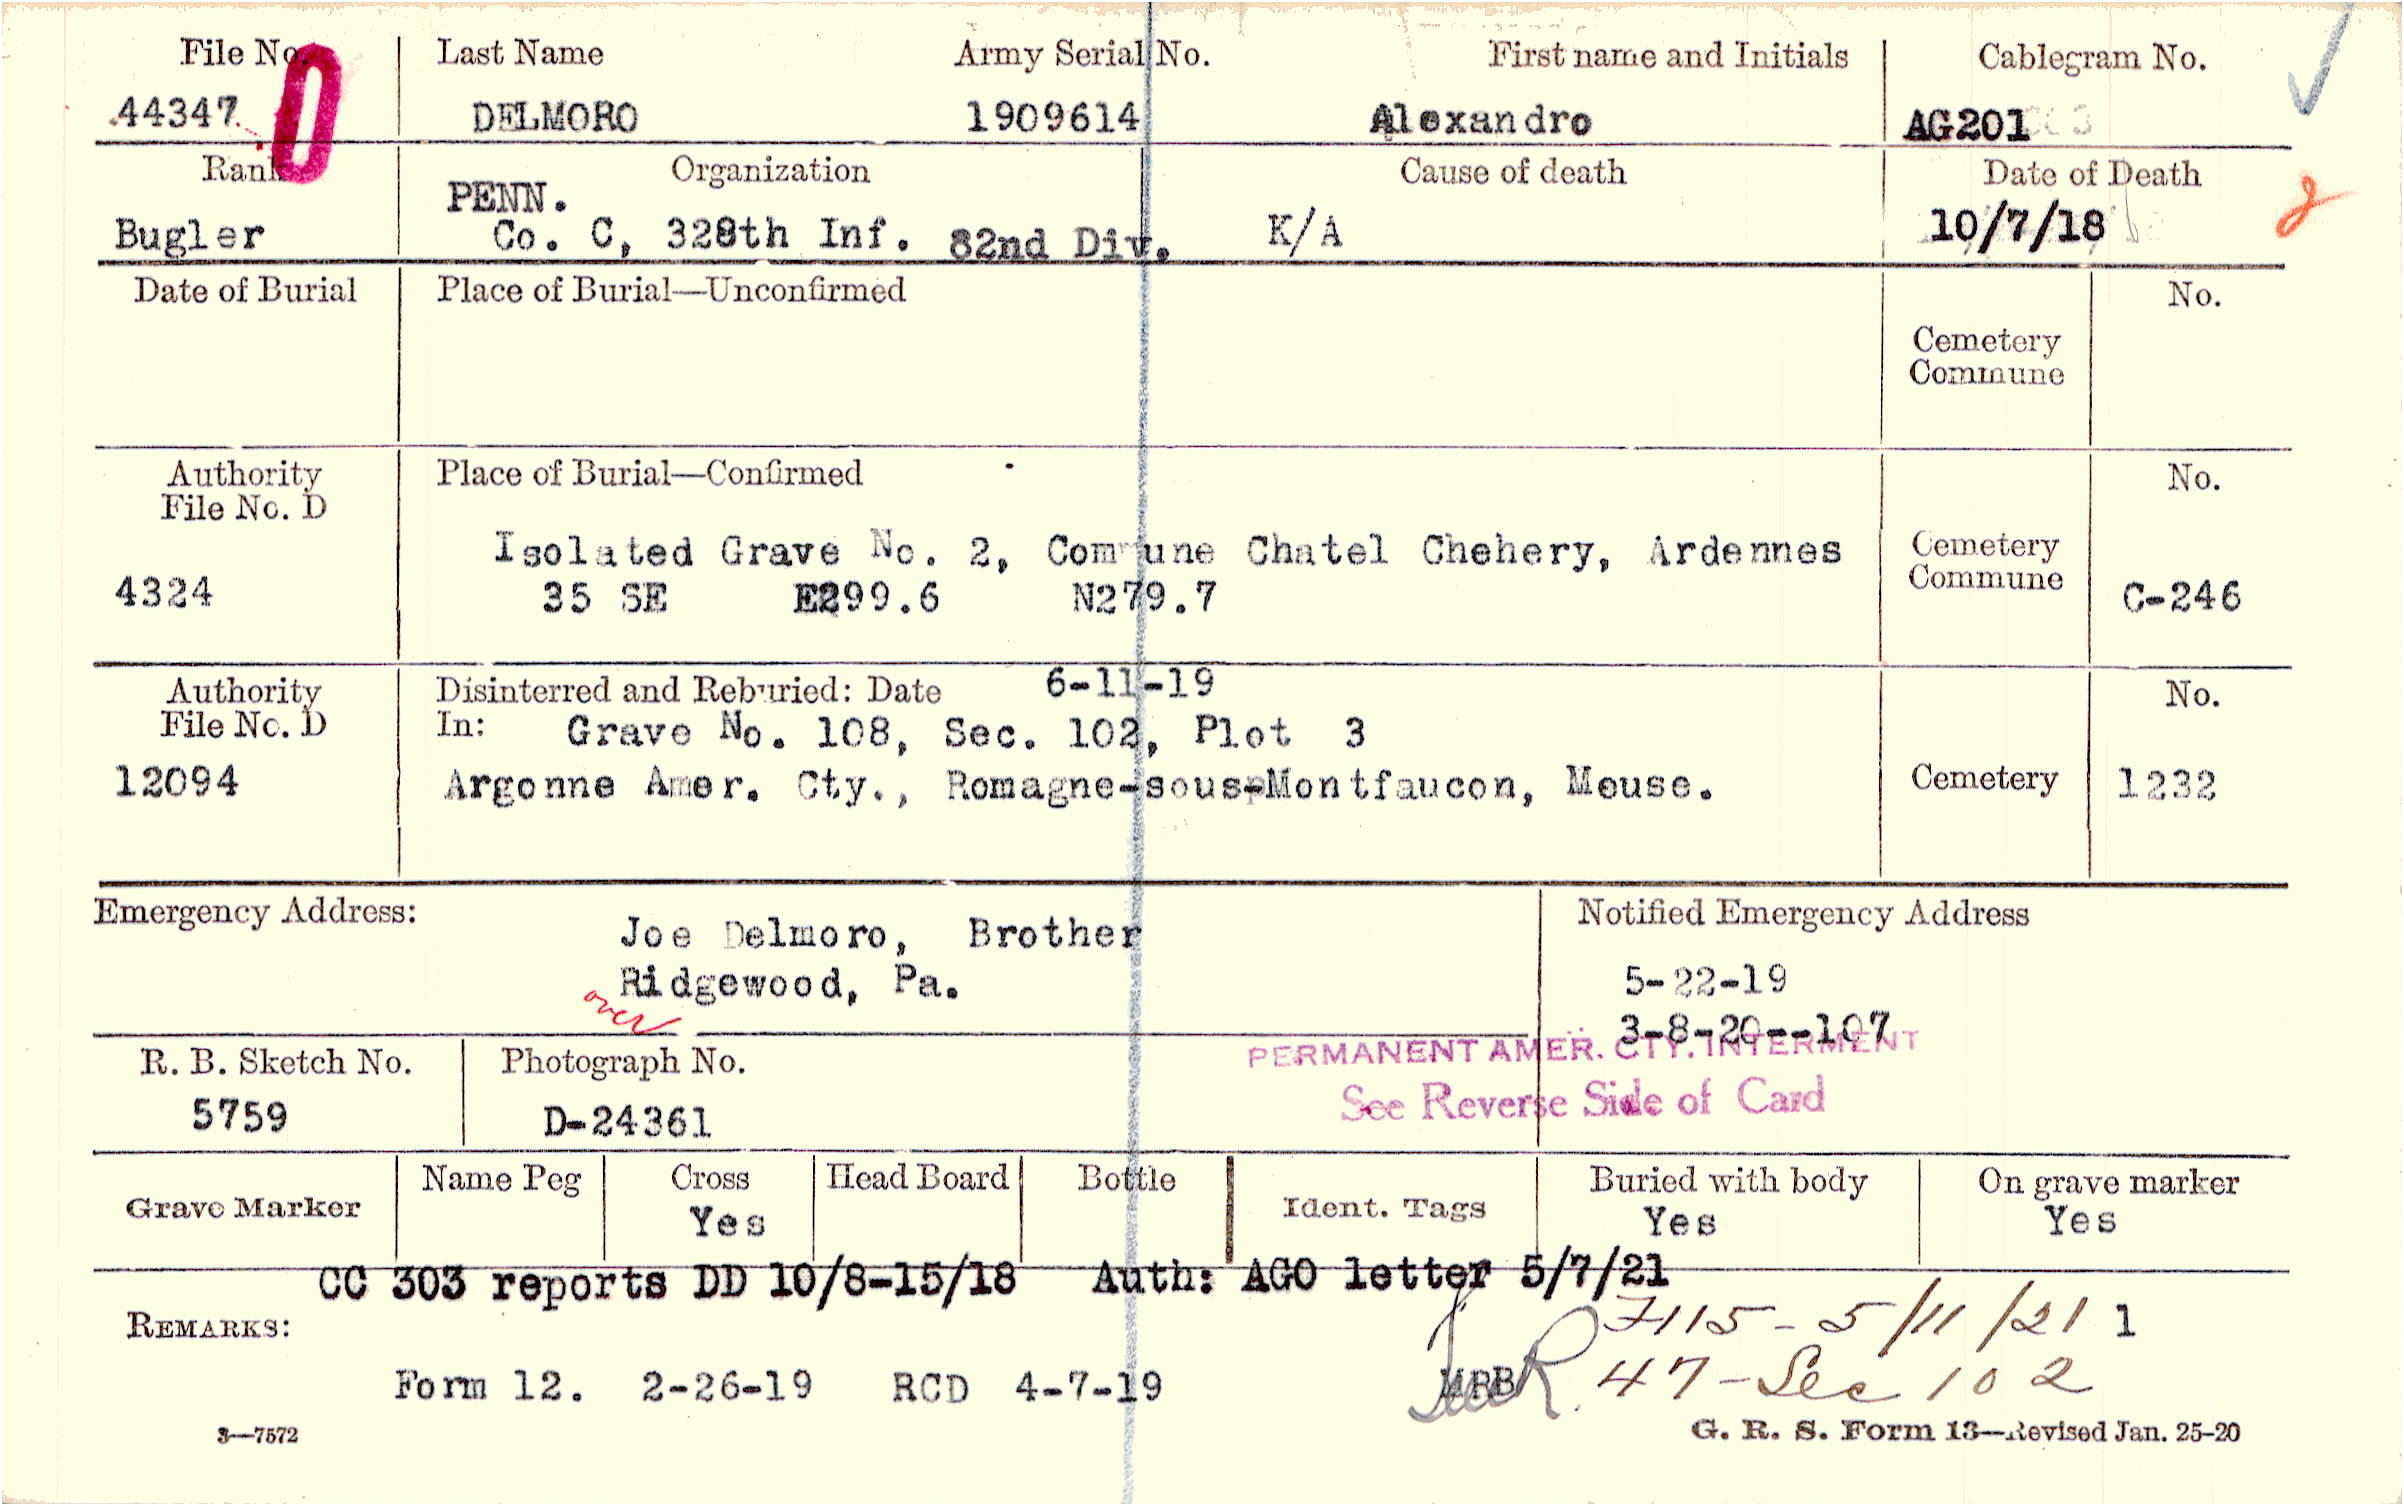 File No. Last Name Army Serial No. First name and Initials Cablegram No.
44347 DELMORO 1909614 Alexandro AG201
Rank Organization Cause of death Date of Death
PENN.
Bugler Co. C, 328th Inf. 82nd Div. K/A 10/7/18
Date of Burial Place of Burial—Unconfirmed No.
Cemetery
Commune
Authority Place of Burial—Confirmed No.
File No. D
Isolated Grave No. 2, Commune Chatel Chehery, Ardennes Cemetery
4324 35 SE E299.6 N279.7 Commune C-246
Authority Disinterred and Reburied: Date 6-11-19 No.
File No. D In: Grave No. 108, Sec. 102, Plot 3
12094 Argonne Amer. Cty., Romagne-sous-Montfaucon, Meuse. Cemetery 1232
Emergency Address: Notified Emergency Address
Joe Delmoro, Brother
Ridgewood, Pa. 5-22-19
over
3-8-20--107
PERMANENT AMER. CTY. INTERMENT
R. B. Sketch No. Photograph No.
See Reverse Side of Card
5759 D-24361
Grave Marker Name Peg Cross Head Board Bottle Ident. Tags Buried with body On grave marker
Yes Yes Yes
CC 303 reports DD 10/8-15/18 Auth: AGO letter 5/7/21
REMARKS: 7115-5/11/21 1
Form 12. 2-26-19 RCD 4-7-19 47-Sec 102
3—7572 G. R. S. Form 13—Revised Jan. 25-20